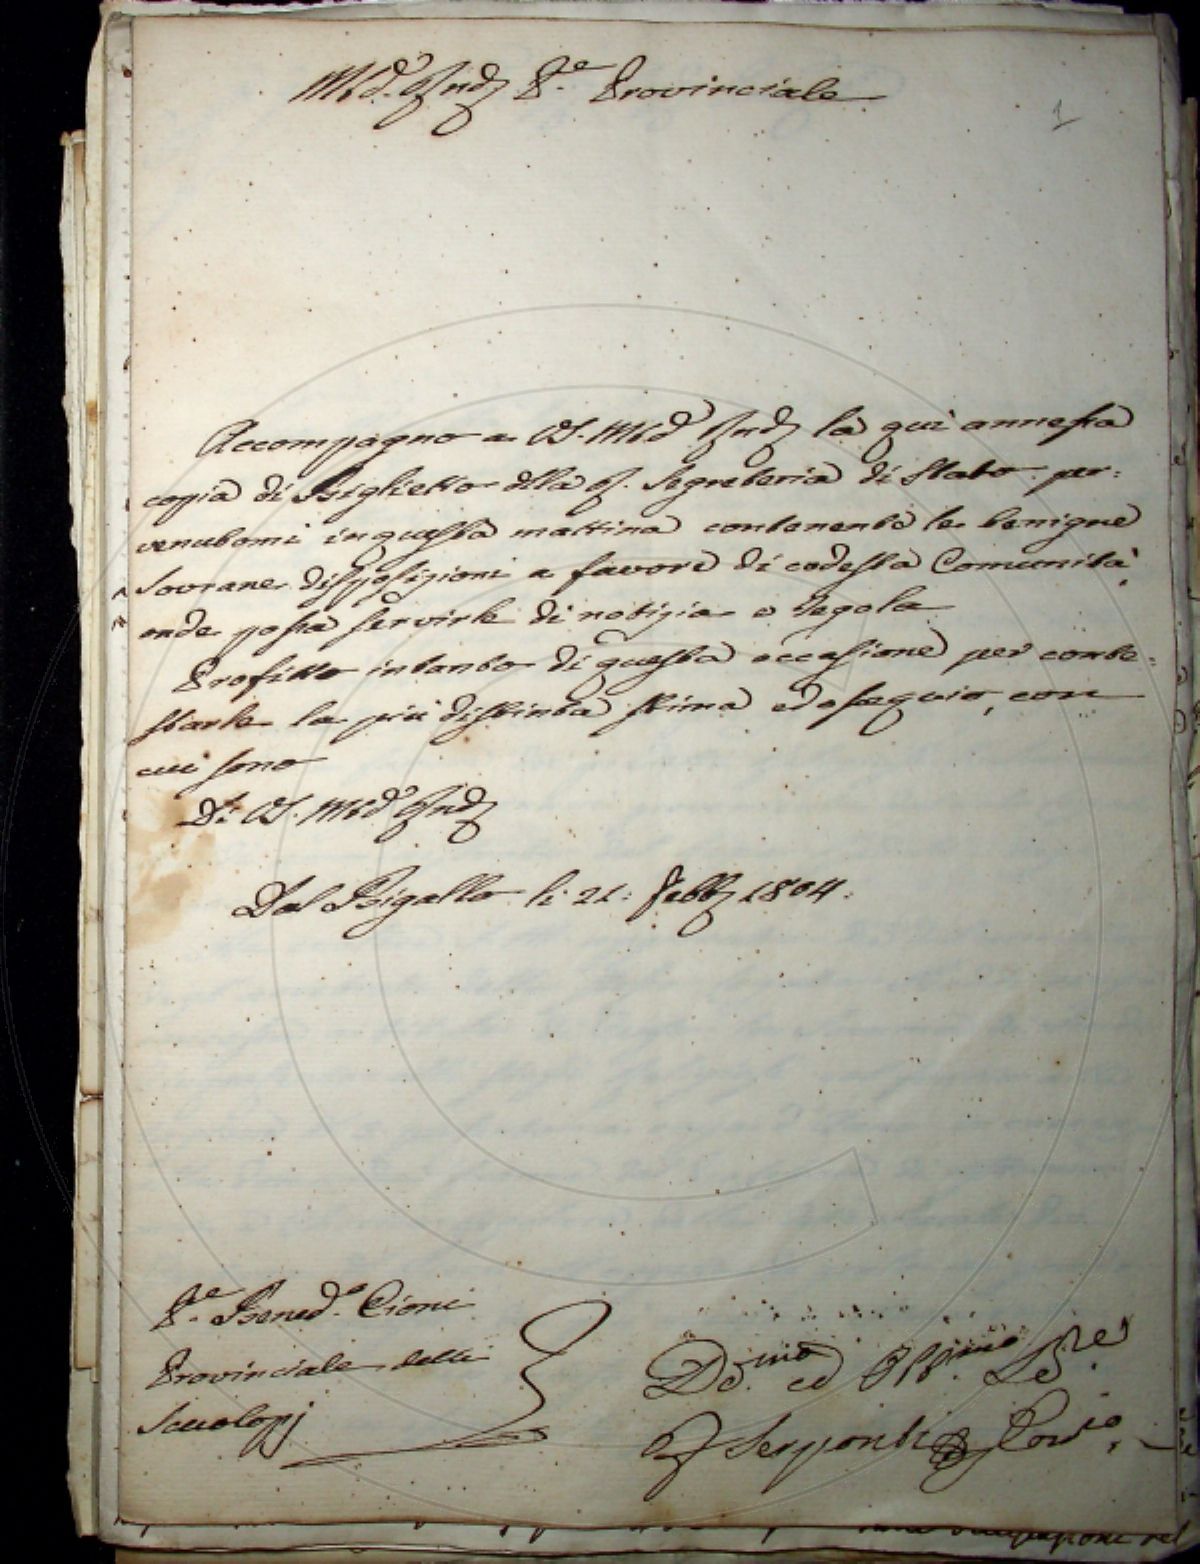 M.to Rndo P.e Provinciale
1
Accompagno a VS. M.to Rndo la quì annessa
copia di Biglietto della R. Segreteria di Stato per:
venutomi in questa mattina contenente le benigne
Sovrane disposizioni a favore di codesta Comunità,
onde possa servirle di notizia e regola
Profitto intanto di questa occasione per conte:
starle la più distinta stima ed ossequio, con
cui sono
Di VS. M.to Rndo
Dal Bigallo li 21: Febb. 1804:
P.e Bened.o Cioni
Provinciale delle
Scuolopj
Do.mo ed Obb.mo Se.re
Serponti